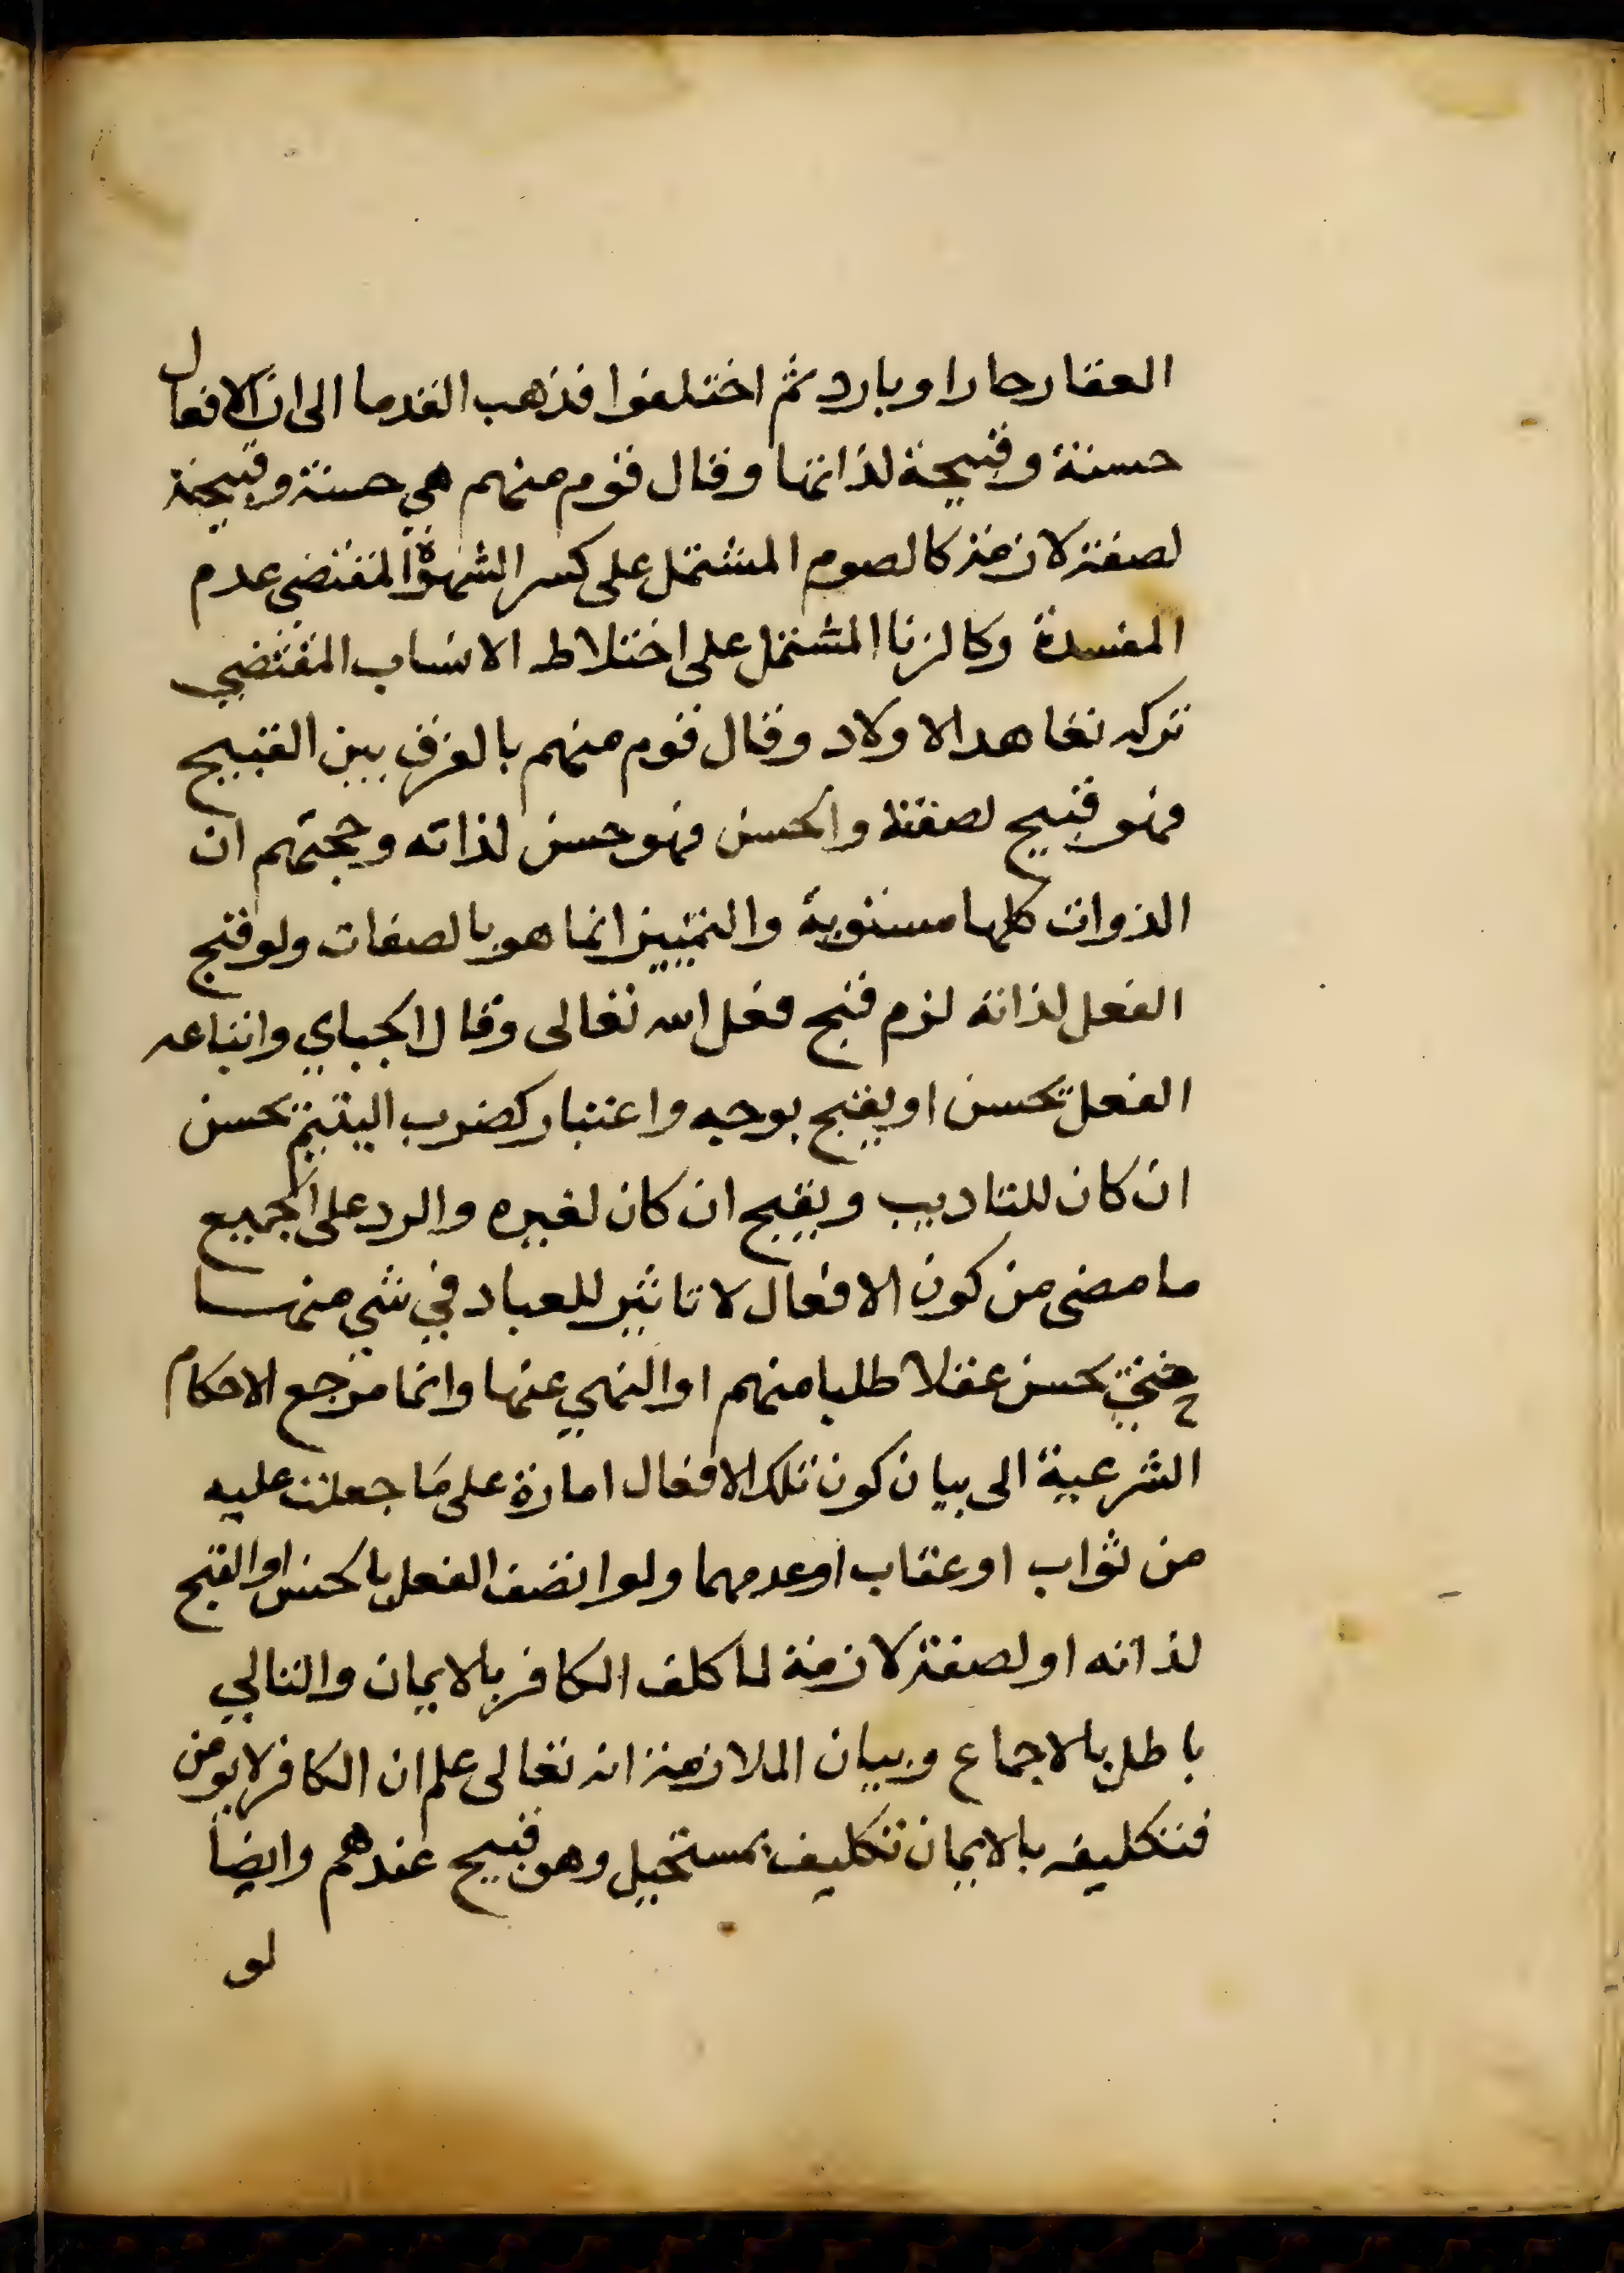 العقار حارا او بارد ثم اختلفوا فذهب القدما الى ان الافعال
حسنة وقبيحة لذاتها وقال قوم منهم هي حسنة وقبيحة
لصفة لازمة كالصوم المشتمل على كسر الشهوة المقتضي عدم
المفسدة وكالزنا المشتمل على اختلاط الانساب المقتضي
تركه تعاهد الاولاد وقال قوم منهم بالفرق بين القبيح
فهو قبيح لصفته والحسن فهو حسن لذاته وحجتهم ان
الذوات كلها مستوية والتمييز انما هو بالصفات ولو قبح
الفعل لذاته لزم قبح فعل الله تعالى وقال الجباي واتباعه
الفعل يحسن او يقبح بوجه واعتبار كضرب اليتيم يحسن
ان كان للتاديب ويقبح ان كان لغيره والرد على الجميع
ما مضى من كون الافعال لا تاثير للعباد في شي منها
حتى يحسن عقلا طلبا منهم او النهي عنها وانما مرجع الاحكام
الشرعية الى بيان كون تلك الافعال امارة على ما جعلت عليه
من ثواب او عقاب او عدمهما ولو اتصف الفعل بالحسن او القبح
لذاته او لصفة لازمة لما كلف الكافر بالايمان والتالي
باطل بالاجماع وبيان الملازمة انه تعالى علم ان الكافر لا يومن
فتكليفه بالايمان تكليف بمستحيل وهو قبيح عندهم وايضا
لو